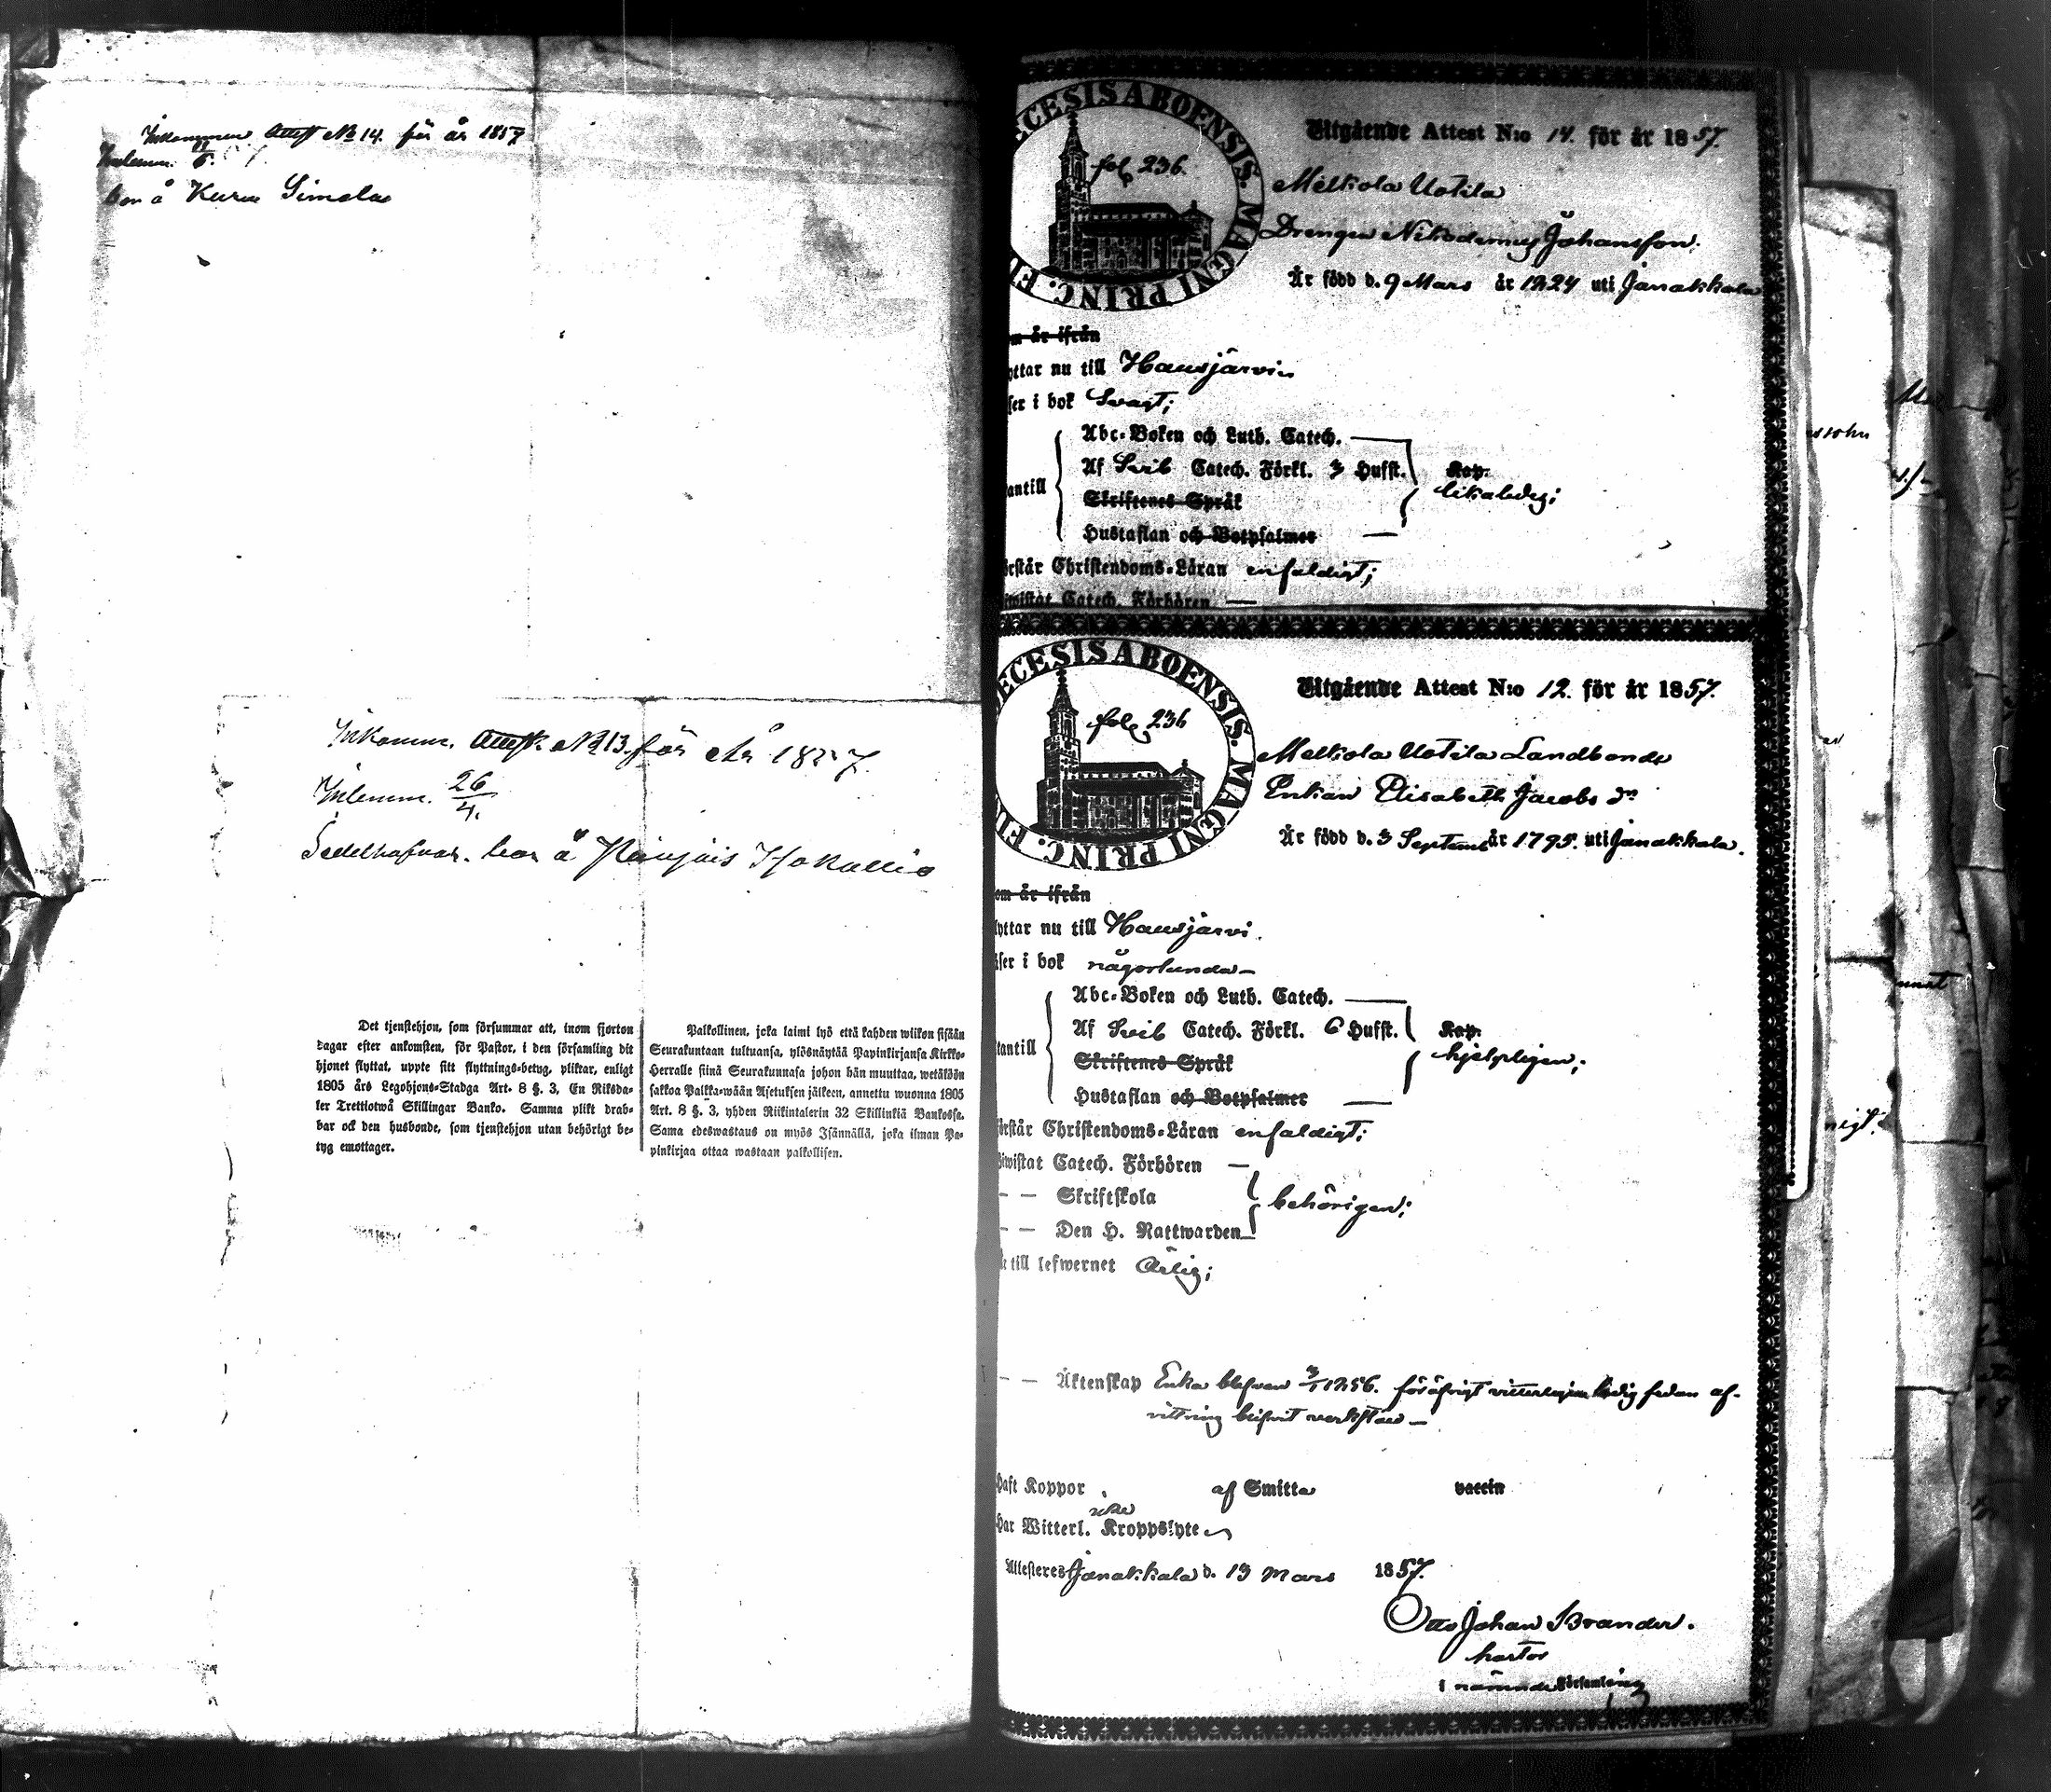 Inkommen Attest No 14. för år 1857
Inlemn. 11/6.
bor å Kuru Simola
Inkomn. Attest. No 13. för År 1857.
Inlemn. 26/4.
Sedelhafvar. bor å Isokallio
Det tjenstehjon, som försummar att, inom fjorton
dagar efter ankomsten, för Pastor, i den församling dit
hjonet flyttat, uppte sitt flyttnings-betyg, pliktar, enligt
1805 års Legohjons-Stadga Art. 8 §. 3, En Riksda-
ler Trettiotwå Skillingar Banko. Samma plikt drab-
bar ock den husbonde, som tjenstehjon utan behörigt be-
tyg emottager.
Palkollinen, joka laimi lyö että kahden wiikon sisään
Seurakuntaan tultuansa, ylösnäytää Papinkirjansa Kirkko-
Herralle siinä Seurakunnasa johon hän muuttaa, wetäköön
sakkoa Palkka-wään Asetuksen jälkeen, annettu wuonna 1805
Art. 8 §. 3, yhden Riikintalerin 32 Skillinkiä Bankossa.
Sama edeswastaus on myös Isännällä, joka ilman Pa-
pinkirjaa ottaa wastaan palkollisen.
ECESIS ABOENSIS. MAGNI PRINC. FI
fol 236.
Utgående Attest N:o 14. för år 1857.
Melkola Uotila
Drengen Nikodemus Johansson.
Är född d. 9 Mars år 1824 uti Janakkala
m är ifrån
yttar nu till Hausjärvi
ser i bok Svagt;
antill
Abc-Boken och Luth. Catech. —
Af Sveb Catech. Förkl. 3 Hufst.
Kap.
likaledes;
Skriftenes Språk
Hustaflan och Botpsalmer —
örstår Christendoms-Läran enfaldigt;
iwistat Catech. Förhören —
ECESIS ABOENSIS. MAGNI PRINC. FI
fol 236
Utgående Attest N:o 12. för år 1857.
Melkola Uotila Landbonde
Enkan Elisabeth Jacobs dr
Är född d. 3 Septemb år 1795. uti Janakkala.
om är ifrån
lyttar nu till Hausjärvi.
äser i bok någorlunda —
tantill
Abc-Boken och Luth. Catech. —
Af Sveb Catech. Förkl. 6 Hufst.
Kap.
hjelpligen;
Skriftenes Språk
Hustaflan och Botpsalmer —
örstår Christendoms-Läran enfaldigt;
iwistat Catech. Förhören —
— — Skriftskola
behörigen;
— — Den H. Nattwarden
till lefwernet Ärlig;
— — Äktenskap Enka blefven 3/1 1856. föröfrigt vitterligen ledig sedan af-
vittring blifvit verkstäld —
Haft Koppor af Smitta vaccin
Har Witterl. icke Kroppslyte
Attesteres Janakkala d. 13 Mars 1857.
Otto Johan Brander.
Pastor
i nämnde Församling